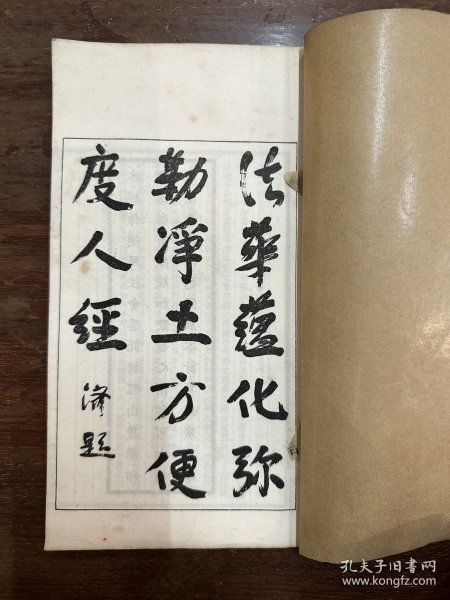 法華蕴化弥
勒淨土方便
度人經
济題
孔夫子旧书网
www.kongfz.com